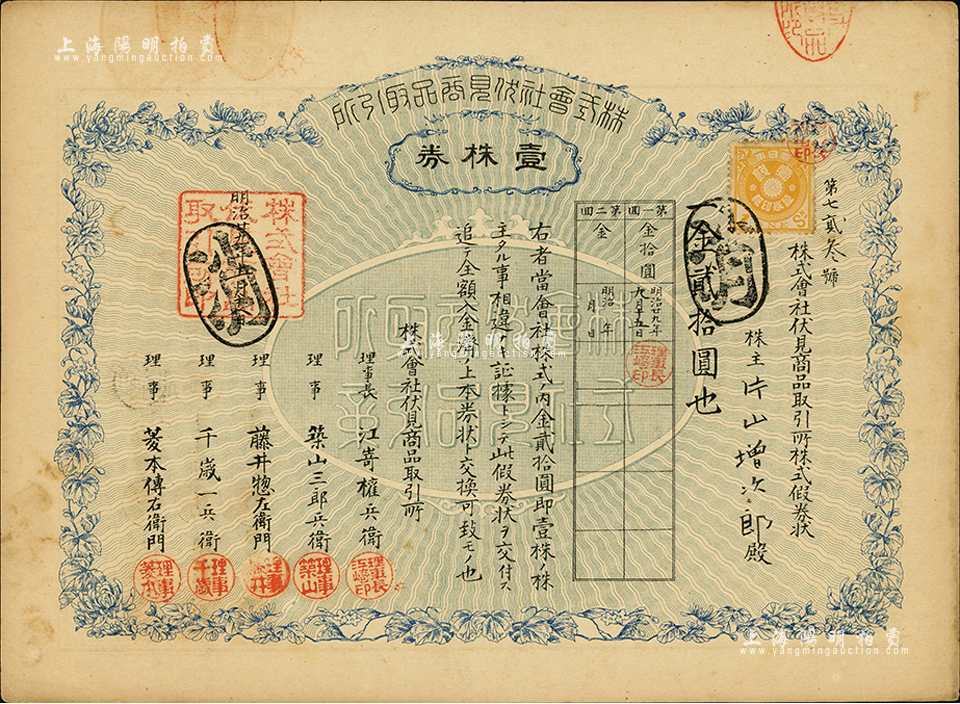 上海陽明拍賣
www.yangmingauction.com
株式會社伏見商品取引所
壹株券
第七貳叁號
株式會社伏見商品取引所株式假券狀
株主 片山增次郎殿
一金貳拾圓也
第一回
金拾圓
明治廿九年
九月十五日
理事長
江嵜印
第二回
金
明治 年
月 日
右者當會社株式ノ内金貳拾圓即壹株ノ株
主タル事相違ナク証據トシテ此假券狀ヲ交付ス
追テ全額入金濟ノ上本券狀ト交換可致モノ也
株式會社伏見商品取引所
理事長 江嵜權兵衛
理事 築山三郎兵衛
理事 藤井惣左衛門
理事 千歳一兵衛
理事 菱本傳右衛門
理事長
江嵜印
理事
築山
理事
千歳
理事
菱本
上海陽明拍賣
www.yangmingauction.com
上海陽明拍賣
www.yangmingauction.com